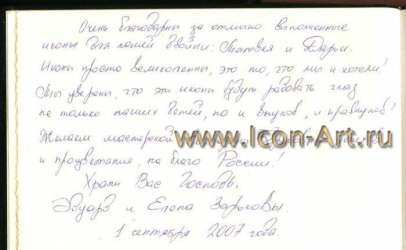 Очень благодарны за отлично выполненные
иконы для нашей двойни: Матвея и Дарьи.
Иконы просто великолепны, это то, что мы и хотели!
Мы уверены, что эти иконы будут радовать глаз
не только наших детей, но и внуков, и правнуков!
Желаем мастерской
www.Icon-Art.ru
и процветания, на благо России!
Храни Вас Господь.
Эдуард и Елена
1 сентября 2007 года